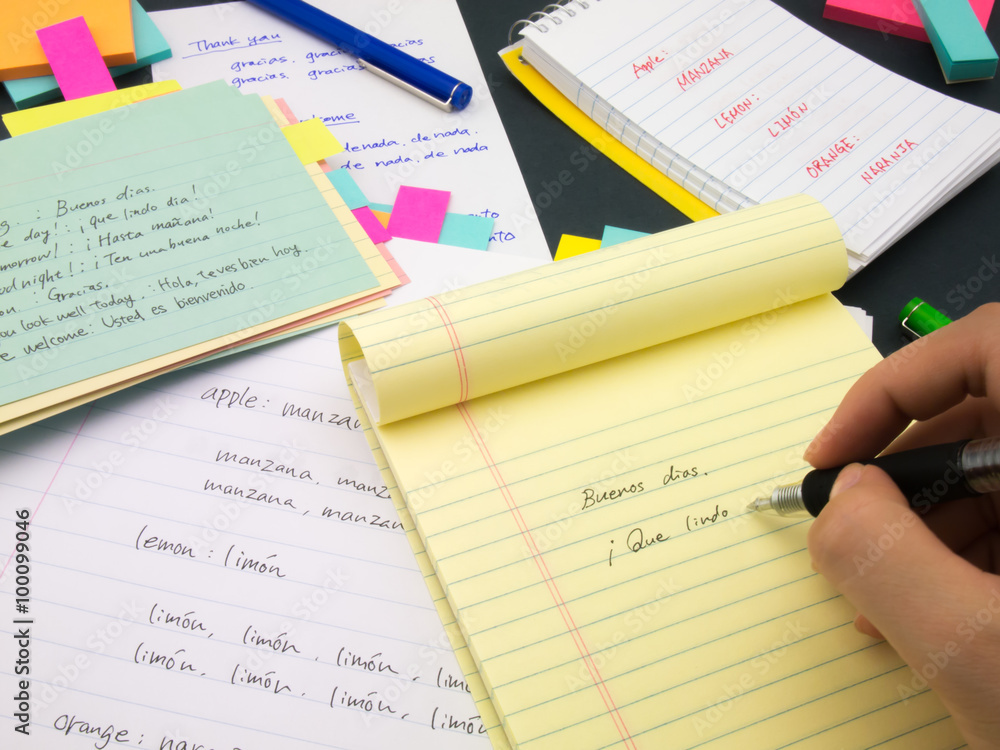 Thank you
gracias, gracias, gracias
gracias, gracias
de nada, de nada,
de nada, de nada
Apple:
MANZANA
LEMON:
LIMÓN
ORANGE:
NARANJA
: Buenos dias.
day! : ¡ que lindo dia!
! : ¡ Hasta mañana!
night! : ¡ Ten una buena noche!
: Gracias.
look well today. : Hola, te ves bien hoy.
welcome: Usted es bienvenido.
apple: manzan
manzana, man
manzana, manzan
lemon: limón
limón, limón, limón, limó
limón, limón, limón, limón
orange: nar
Buenos dias.
¡ Que lindo
100099046
Adobe Stock